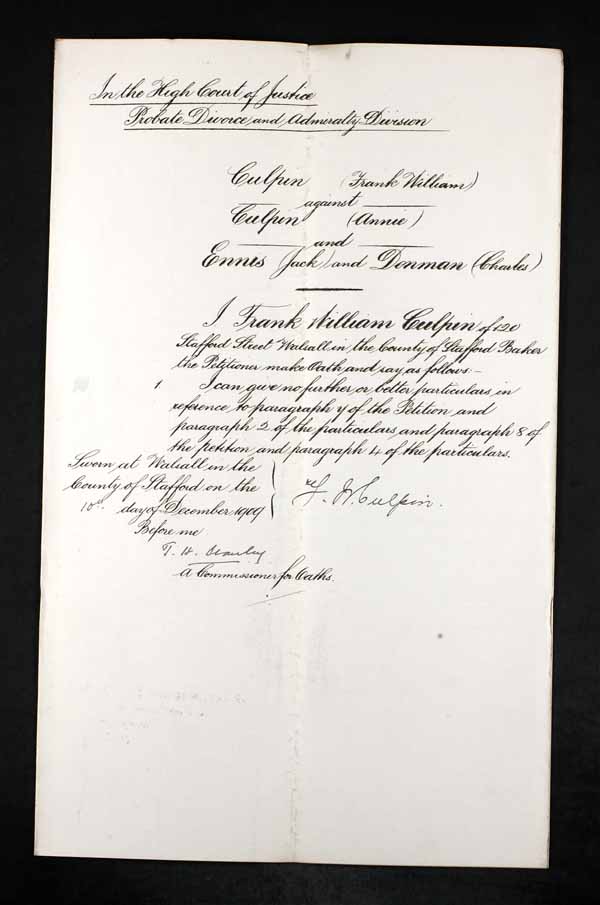 In the High Court of Justice
Probate Divorce and Admiralty Division
Culpin (Frank William)
against
Culpin (Annie)
and
Ennis (Jack) and Denman (Charles)
I Frank William Culpin of 120
Stafford Street Walsall in the County of Stafford Baker
the Petitioner make Oath and say as follows:-
1 I can give no further or better particulars in
reference to paragraph 7 of the Petition and
paragraph 2 of the particulars, and paragraph 8 of
the petition and paragraph 4 of the particulars.
Sworn at Walsall in the
County of Stafford on the
10th day of December 1919
F. W. Culpin.
Before me
T. H.
A Commissioner for Oaths.